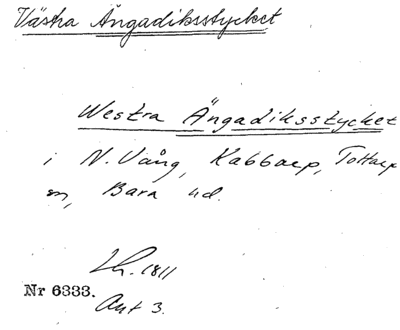 Västra Ängadiksstycket
Westra Ängadiksstycket
i N. Vång, Kabbarp, Tottarp
sn, Bara hd.
Lh. 1811
Nr 6333.
Akt 3.